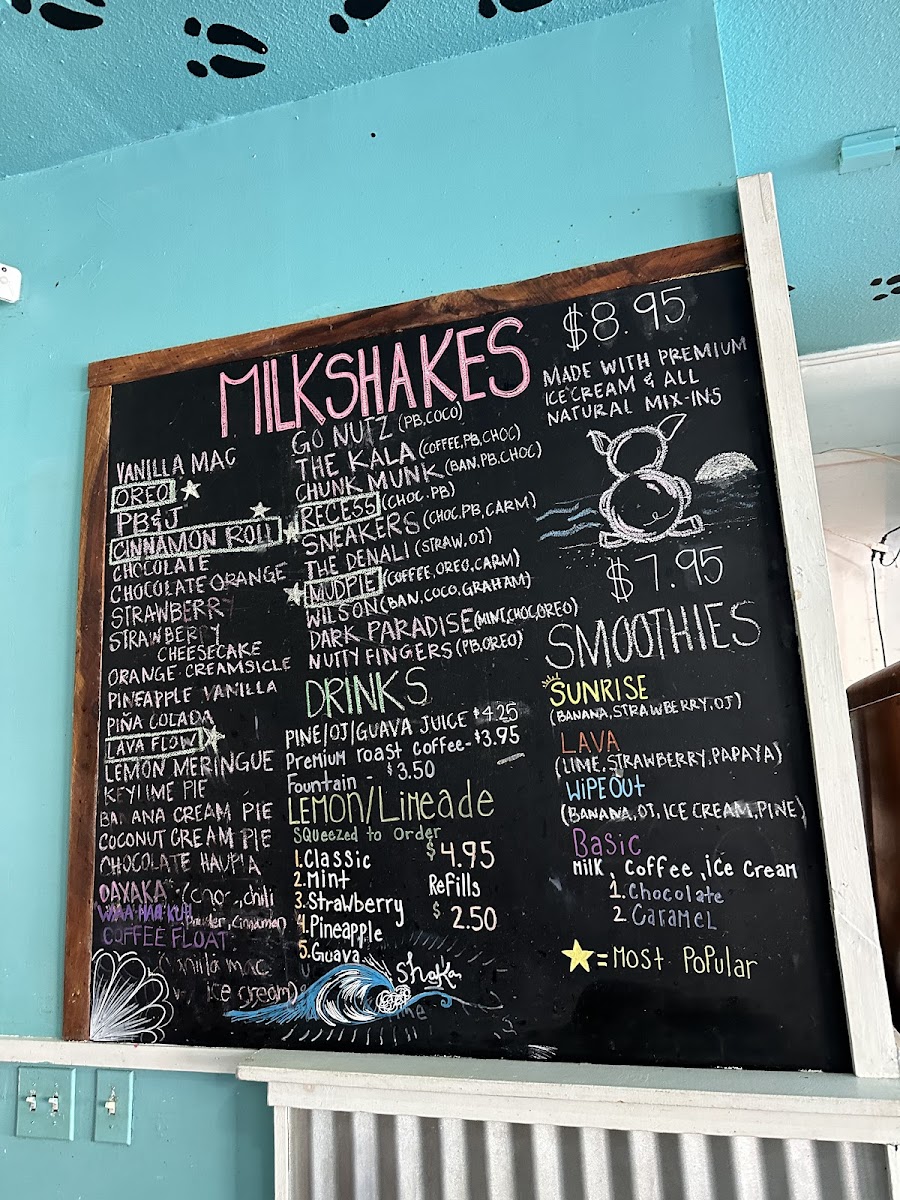 MILKSHAKES
$8.95
MADE WITH PREMIUM
ICE CREAM & ALL
NATURAL MIX-INS
VANILLA MAC
OREO
PB&J
CINNAMON ROLL
CHOCOLATE
CHOCOLATE ORANGE
STRAWBERRY
STRAWBERRY
CHEESECAKE
ORANGE CREAMSICLE
PINEAPPLE VANILLA
PIÑA COLADA
LAVA FLOW
LEMON MERINGUE
KEYLIME PIE
BANANA CREAM PIE
COCONUT CREAM PIE
CHOCOLATE HAUPIA
OAXAKA
chili
Cinnamon)
COFFEE FLOAT
mac
ice cream)
GO NUTZ (PB,COCO)
THE KALA (COFFEE,PB,CHOC)
CHUNK MUNK (BAN,PB,CHOC)
RECESS (CHOC.PB)
SNEAKERS (CHOC,PB,CARM)
THE DENALI (STRAW,OJ)
MUDPIE (COFFEE,OREO,CARM)
WILSON (BAN,COCO,GRAHAM)
DARK PARADISE (MINT,CHOC,OREO)
NUTTY FINGERS (PB,OREO)
DRINKS
PINE/OJ/GUAVA JUICE $4.25
Premium roast coffee - $3.95
Fountain - $3.50
LEMON/LIMEADE
SQueezed to order
1.Classic $4.95
2.Mint Refills
3.Strawberry $2.50
4.Pineapple
5.Guava
Shaka
$7.95
SMOOTHIES
SUNRISE
(BANANA,STRAWBERRY,OJ)
LAVA
(LIME,STRAWBERRY,PAPAYA)
WiPEOUT
(BANANA,OJ,ICE CREAM,PINE)
Basic
Milk, Coffee, ice cream
1. Chocolate
2. Caramel
= Most Popular